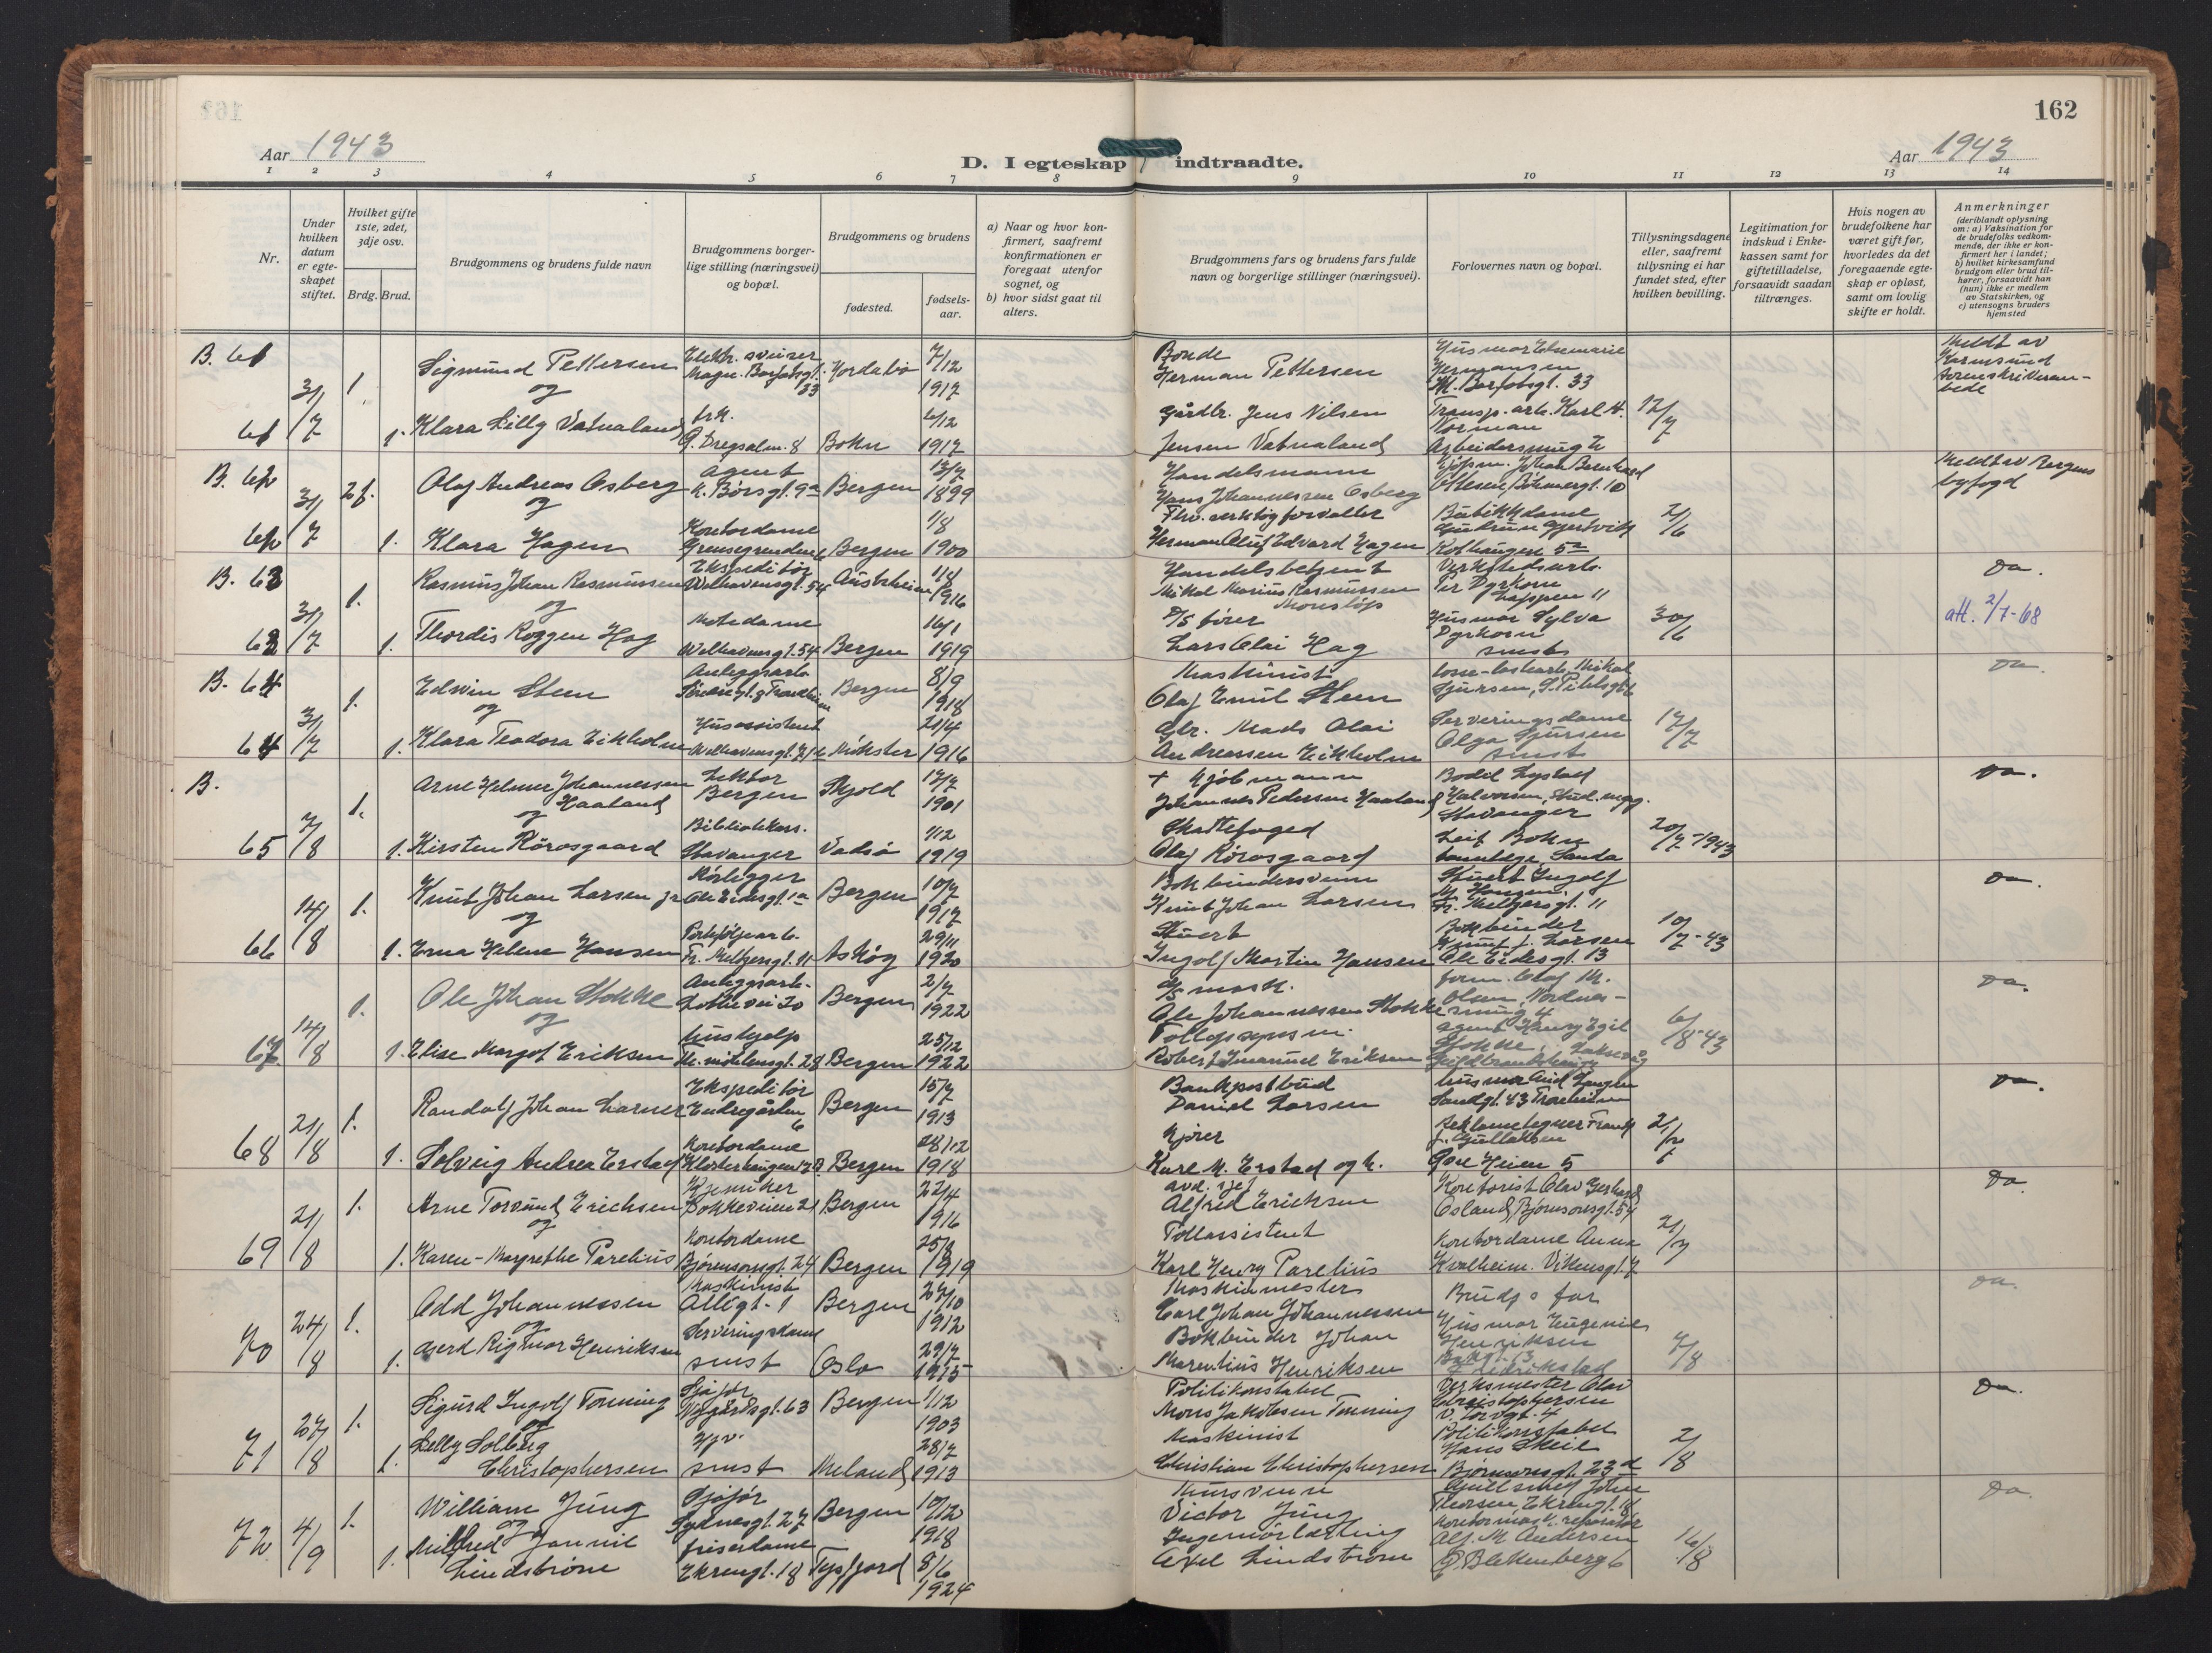 162
Aar 1943
D. I egteskap indtraadte.
Aar 1943
1 2 3 4 5 6 7 8 9 10 11 12 13 14
Nr.
Under hvilken datum er egteskapet stiftet.
Hvilket gifte 1ste, 2det, 3dje osv.
Brdg. Brud.
Brudgommens og brudens fulde navn
Brudgommens borgerlige stilling (næringsvei) og bopæl.
Brudgommens og brudens
fødested.
fødselsaar.
a) Naar og hvor konfirmert, saafremt konfirmationen er foregaat utenfor sognet, og
b) hvor sidst gaat til alters.
Brudgommens fars og brudens fars fulde navn og borgerlige stillinger (næringsvei).
Forlovernes navn og bopæl.
Tillysningsdagene eller, saafremt tillysning ei har fundet sted, efter hvilken bevilling.
Legitimation for indskud i Enkekassen samt for giftetilladelse, forsaavidt saadan tiltrænges.
Hvis nogen av brudefolkene har været gift før, hvorledes da det foregaaende egteskap er opløst, samt om lovlig skifte er holdt.
Anmerkninger
(deriblandt oplysning om: a) Vaksination for de brudefolks vedkommende, der ikke er konfirmert her i landet; b) hvilket kirkesamfund brudgom eller brud tilhører, forsaavidt han (hun) ikke er medlem av Statskirken, og c) utensogns bruders hjemsted
B. 61
3/7 1. Sigmund Pettersen
og
33 7/12 1917
Bonde
Herman Pettersen
Hermansen
M. Barfotsgt. 33
Meldt av Karmsund
61 1. Klara Lilly Vatnaland
Bokn 4/12 1917
Gårdbr. Jens Nilsen
Jensen Vatnaland
Transp. arb. Karl H. Norman
12/7
B. 62
3/7 2f. Olaf Andreas Osberg
og
Agent
K. Børsgt. 9a Bergen 13/7 1899
Handelsmann
Hans Johannessen Osberg
Kjøpm. Johan Bernhard Ottesen, Bøhmergt. 10
Meldt av Bergens byfogd
62 1. Klara Hagen
Kontordame
Bergen 1/8 1900
Herman Oluf Edvard Hagen
Butikkdame
2/6
B. 63
3/7 1. Rasmus Johan Rasmussen
og
Ekspeditør
Welhavensgt. 54 Austrheim 1916
Handelsbetjent
Mikal Marius Rasmussen
Verkstedsarb.
Per Dyrkorn
Da.
63 1. Thordis Roggen Hag
Motedame
Welhavensgt. 54 Bergen 16/1 1919
D/S fører
Lars Olai Hag
Husmor Sylva Dyrkorn
smst
30/6
att. 2/7-68
B. 64
3/7 1. Edwin Steen
og
Anleggsarb.
Bergen 8/9 1918
Maskinist
Olaf Emil Steen
Da.
64 1. Klara Teodora Eikholm
Husassistent
Welhavensgt. 71b 21/4 1916
Gbr. Mads Olai
Andreassen Eikholm
Serveringsdame
Olga Sjursen
smst
17/7
B.
7/8 1. Arne Helmer Johannessen Haaland
og
Lektor
Bergen Skjold 17/7 1901
+ Kjøbmann
Johannes Pedersen Haaland
Bodil Lystad
Halvorsen, stud. mag.
Stavanger
Da.
65 1. Kirsten Rørosgaard
Stavanger Vadsø 1/12 1919
Skattefoged
Olaf Rørosgaard
Leif Bokn
tannlege, Sauda
20/7-1943
14/8 1. Knut Johan Larsen jr
og
Rørlegger
Ole Eidesgt. 1a Bergen 10/7 1917
Bokbindersvenn
Knut Johan Larsen
Stuert Ingolf
M. Hansen,
Fr. Meltzersgt. 11
Da.
66 1. Erna Helene Hansen
Fr. Meltzersgt. 11 Askøy 29/11 1920
Stuert
Ingolf Martin Hansen
Bokbinder
Knut J. Larsen
Ole Eidesgt. 13
10/7-43
14/8 1. Ole Johan Stokke
og
Anleggsarb.
Bergen 2/7 1922
D/S mask.
Ole Johannessen Stokke
form. Olaf M.
Olsen, Nordnessmug 4
Da.
67 1. Elise Margot Eriksen
Hushjelp
Bergen 25/2 1922
Robert Imanuel Eriksen
Agent Henry Egil
Stokke,
6/8-43
21/8 1. Randolf Johan Larsen
Ekspeditør
Endregården 6 Bergen 15/7 1913
Bankpostbud
Daniel Larsen
Da.
68 1. Solveig Andrea Erstad
Kontordame
Klosterhaugen Bergen 28/12 1918
Kjører
Karl M. Erstad og h.
Reklametegner Frank
J. Gullaksen
Øvre Heien 5
21/8 1. Arne Torsund Erichsen
og
Kjemiker
Bergen 22/4 1916
avd. sjef
Alfred Erichsen
Kontorist Olav Gerhard
Osland, Bjørnsonsgt. 54
Da.
69 1. Karen-Margrethe Parelius
Kontordame
Bjørnsonsgt. 24 Bergen 25/8 1919
Tollassistent
Karl Henry Parelius
Kontordame Anna
Kvalheim. Vikensgt. 7
24/8 1. Odd Johannessen
og
Maskinist
Allégt. 1 Bergen 27/10 1912
Maskinmester
Carl Johan Johannessen
Brudg s far
Da.
70 1. Gerd Rigmor Henriksen
Serveringsdame
smst Oslo 29/7 1915
Bokbinder Johan
Marentius Henriksen
Husmor Eugenie
Henriksen
Fredrikstad
7/8
27/8 1. Sigurd Ingolf Tonning
og
Sjåfør
Nygårdsgt. 63 Bergen 1/12 1903
Politikonstabel
Mons Jakobsen Tonning
Verksmester Olav
Christophersen
V. Torvgt. 4
Da.
71 1. Lilly Solbjørg
Christophersen
Hjv.
smst Meland 28/7 1913
Maskinist
Christian Christophersen
Politikonstabel
Hans Skeie
Bjørnsonsgt. 23d
2/8
4/9 1. William Jung
og
Sjåfør
Sydnesgt. 27 Bergen 10/12 1918
Mursvenn
Victor Jung
Gullsmed John
Thorsen, Ekrengt. 18
Da.
72 1. Mildred Jannie
Lindstrøm
Friserdame
Ekrengt. 18 Tysfjord 8/6 1924
Ingeniørlærling
Axel Lindstrøm
Kontormask. reparatør
Alf. M. Andersen
Ø. Blekenberg 6
16/8